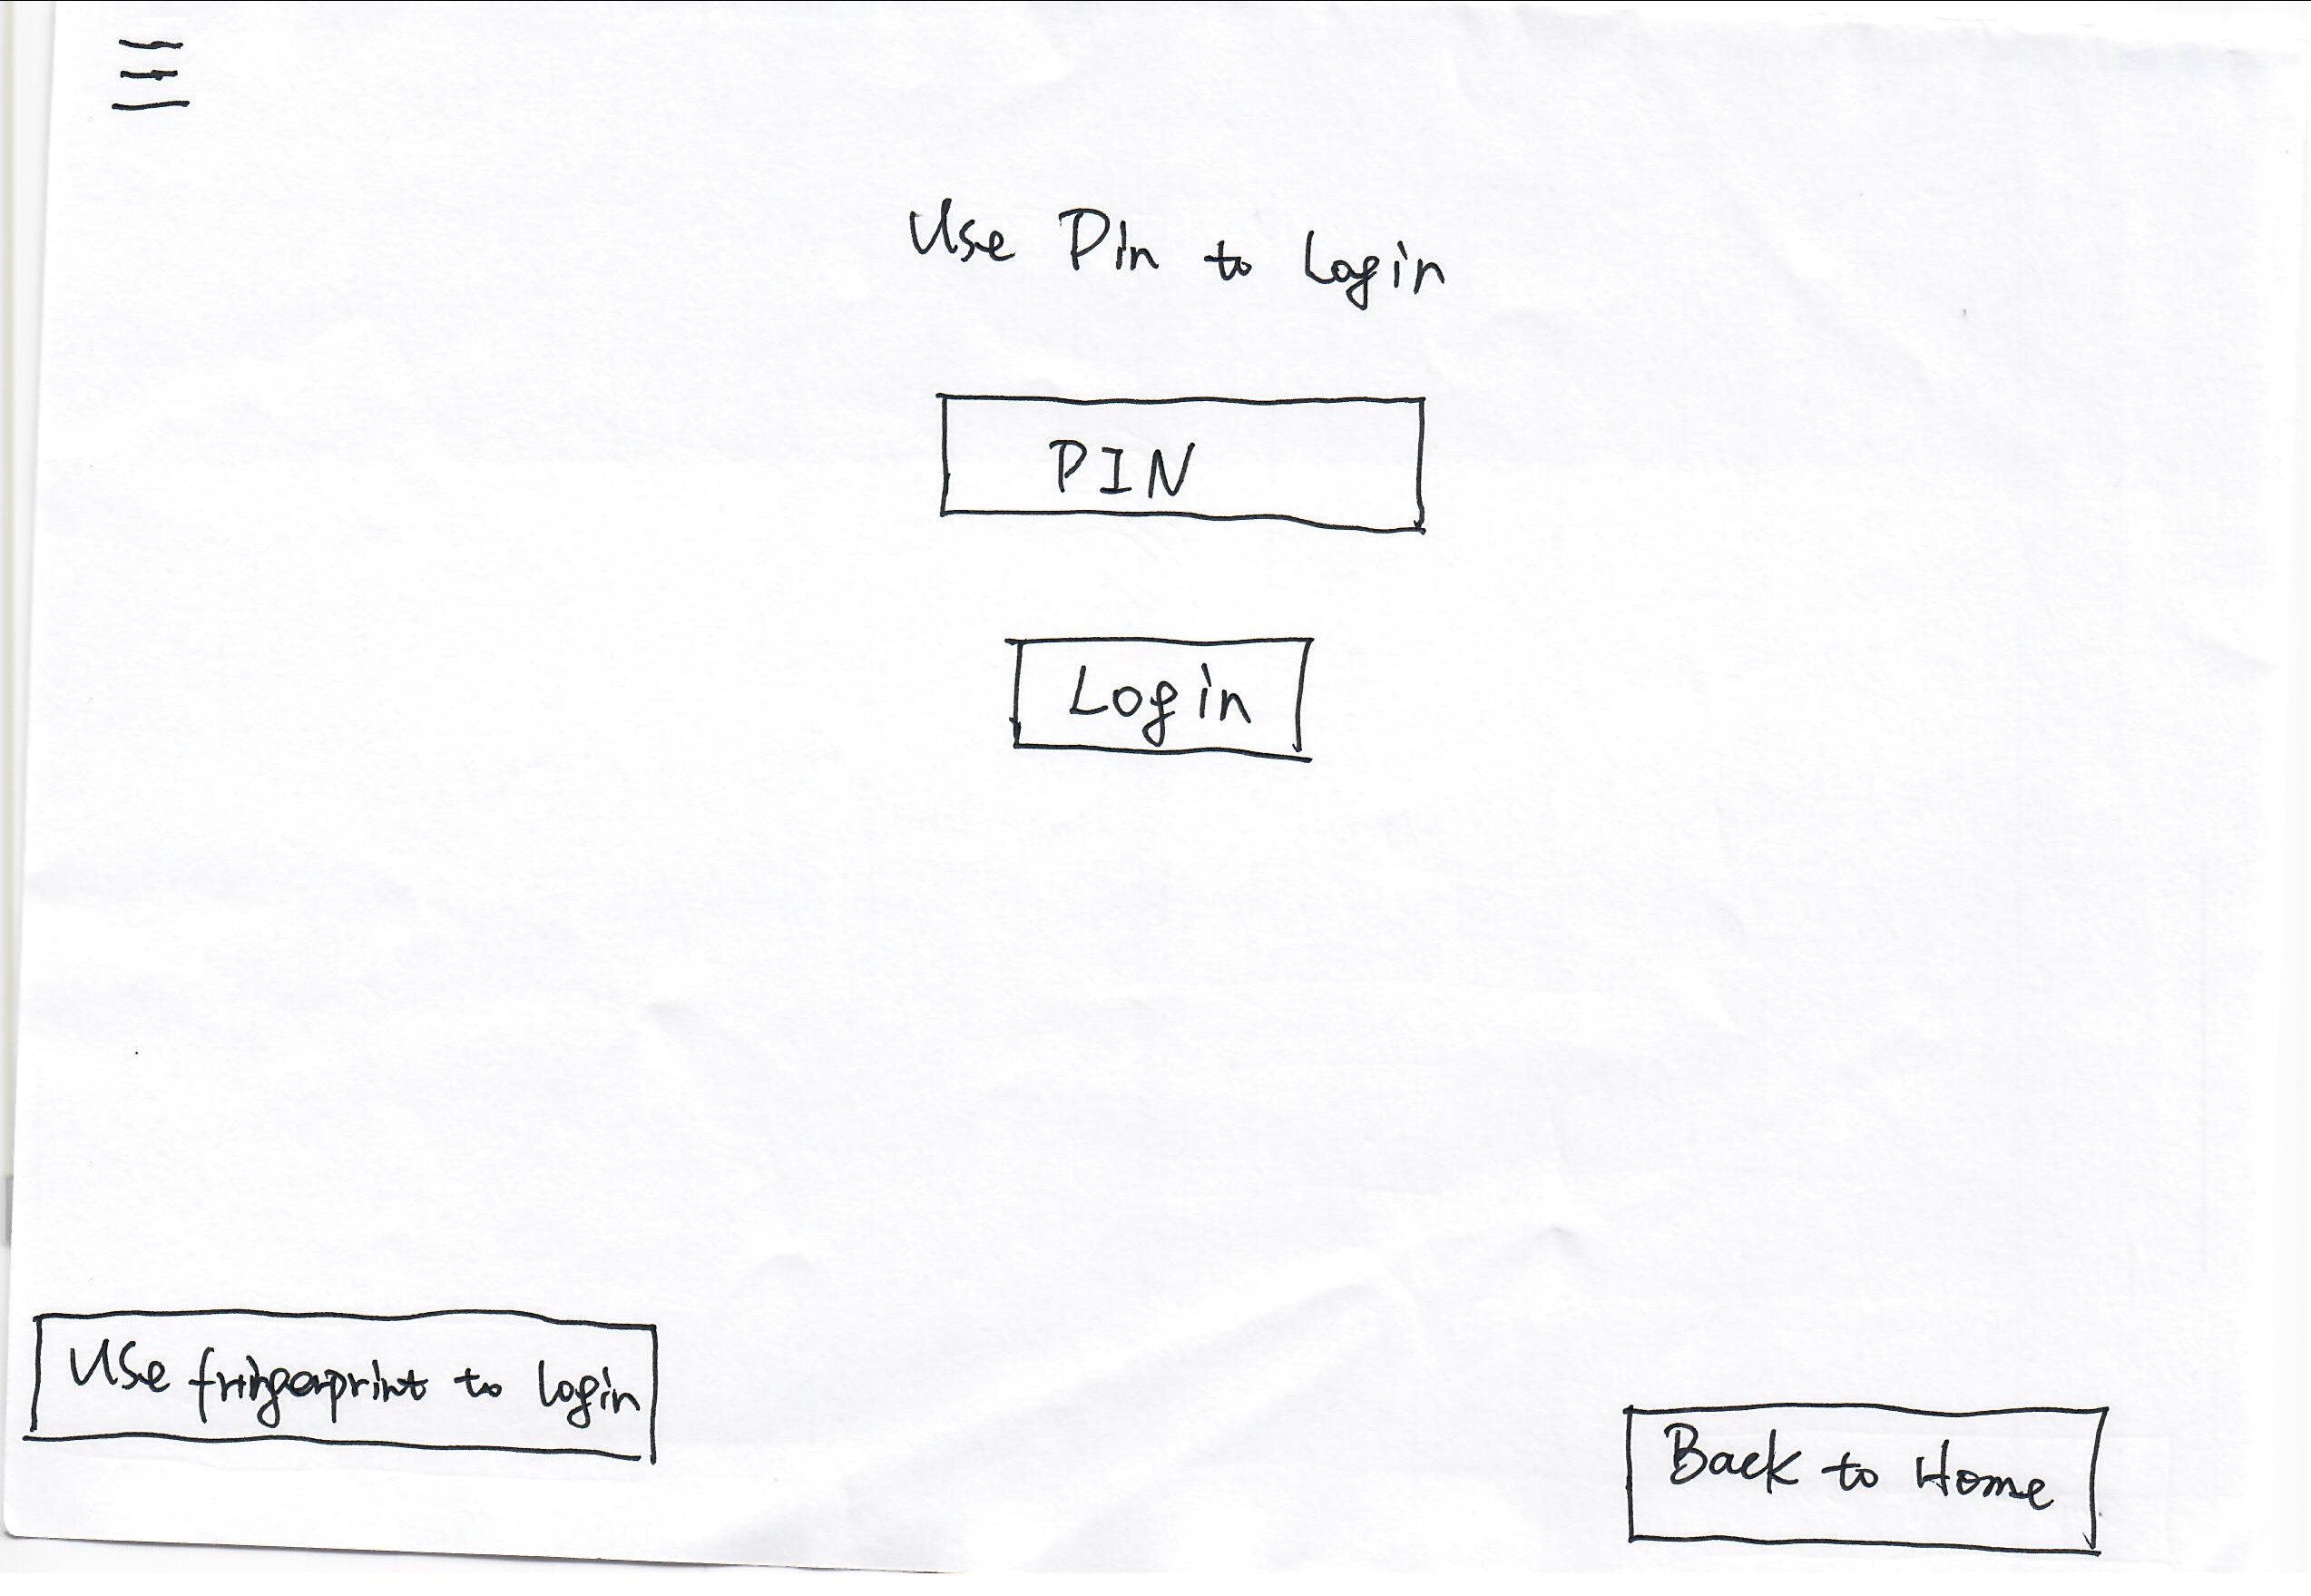 Use Pin to Login
PIN
Login
Use fringerprint to login
Back to Home